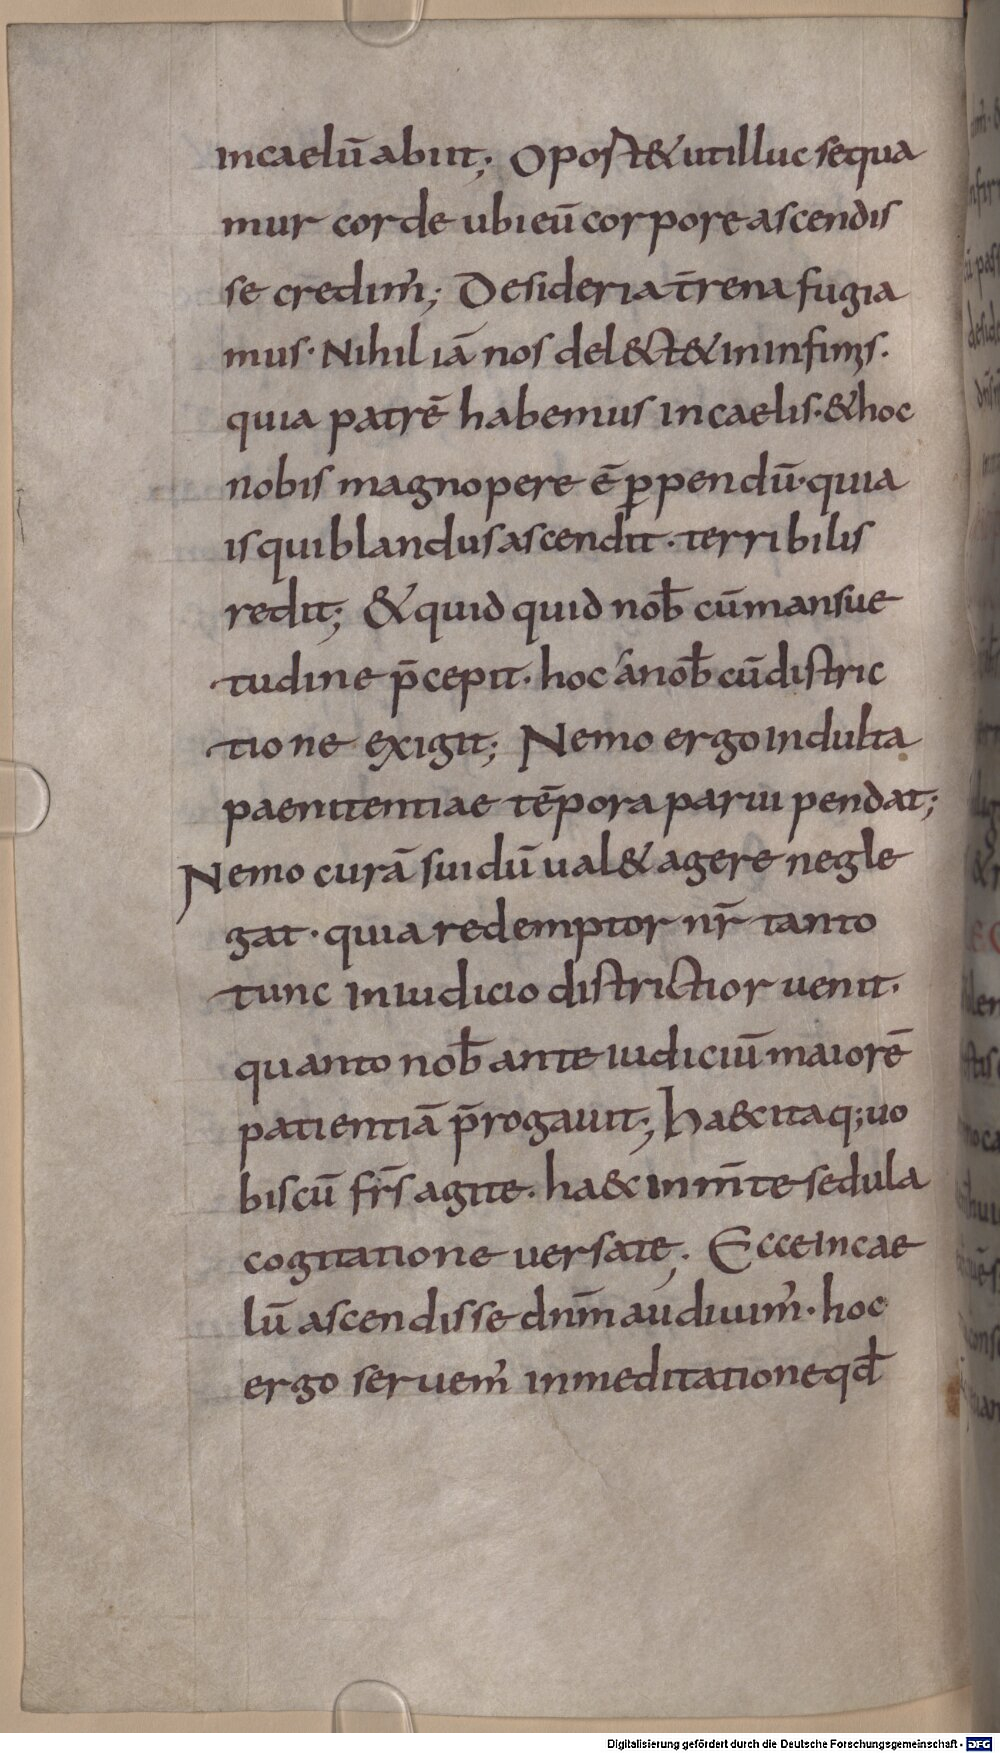 incaelū abiit; Oport& ut illuc sequa
mur corde ubi eū corpore ascendis
se credim᾽; Desideria t̄rena fugia
mus· Nihil iā nos delect& in infimis·
quia patrē habemus in caelis·&hoc
nobis magnopere ē ꝑpendū·quia
is qui blandus ascendit· terribilis
redit; & quid quid nob̄ cū mansue
tudine p̄cepit· hoc a nob̄ cū distric
tione exigit; Nemo ergo indulta
paenitentiae tēpora parui pendat;
Nemo curā sui dū ual& agere negle
gat· quia redemptor nr̄ tanto
tunc in iudicio districtior uenit·
quanto nob̄ ante iudiciū maiorē
patientiā p̄rogauit; Haec itaq; uo
biscū fr̄s agite· haec in m̄te sedula
cogitatione uersate; Ecce in cae
lū ascendisse dn̄m audiuim᾽· hoc
ergo seruem᾽ in meditatione qd̄
Digitalisierung gefördert durch die Deutsche Forschungsgemeinschaft - DFG